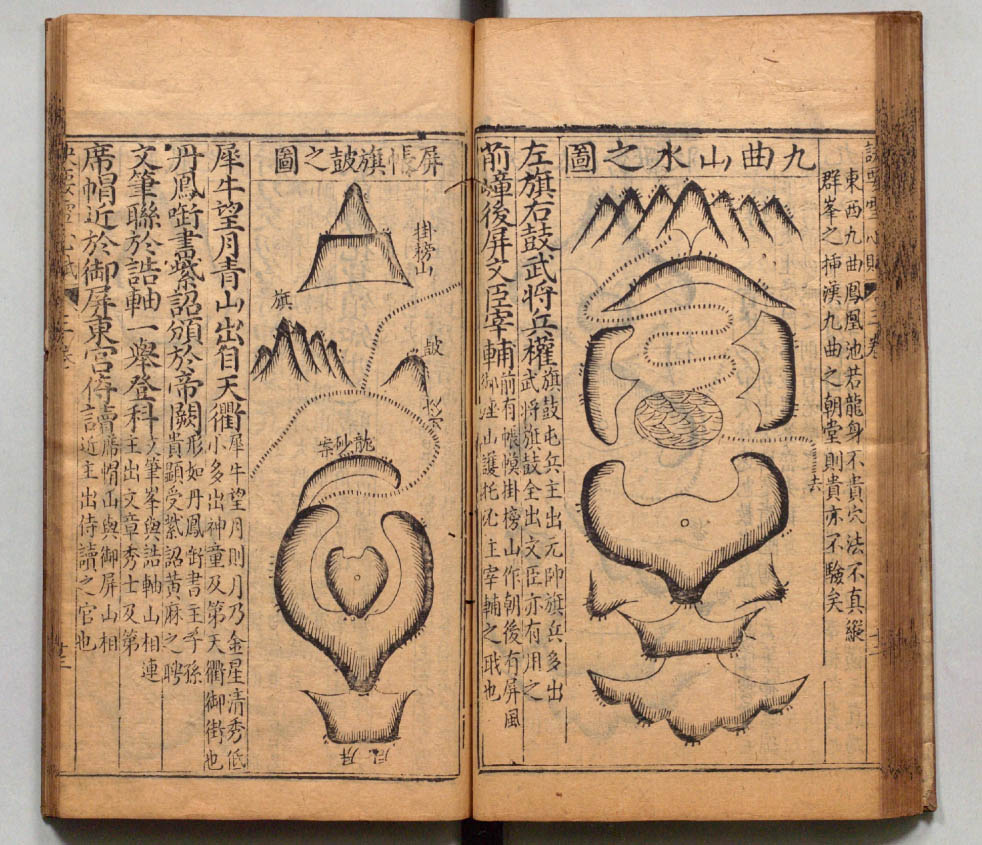 東西九曲鳳凰池若龍身不貴穴法不真縱
群峯之揷漢九曲之朝堂則貴亦不驗矣
九曲山水之圖
去
左旗右鼓武將兵權旗鼓屯兵主出元帥旗兵多出
武將旗鼓全出文臣亦有用之
前嶂後屏文臣宰輔前有帳幙掛榜山作朝後有屏風
御座山護托北主宰輔之職也
屏帳旗皷之圖
掛榜山
旗
皷
龍砂案
屏風
犀牛望月青山出自天衢犀牛望月則月乃金星清秀低
小多出神童及第天衢御街也
丹鳳啣書紫詔頒於帝闕形如丹鳳啣書主子孫
貴顯受紫詔黃麻之聘
文筆聯於誥軸一舉登科文筆峯與誥軸山相連
主出文章秀士及第
席帽近於御屏東宮侍讀席帽山與御屏山相
近主出侍讀之官也